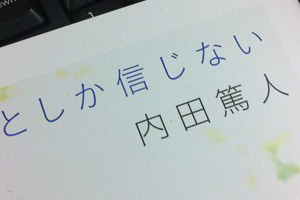 としか信じない
内田篤人